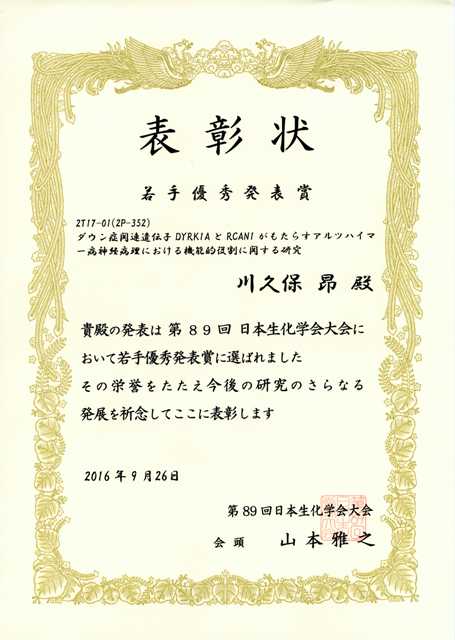 表彰状
若手優秀発表賞
2T17-01(2P-352)
ダウン症関連遺伝子DYRK1AとRCAN1がもたらすアルツハイマ
ー病神経病理における機能的役割に関する研究
川久保 昂 殿
貴殿の発表は第89回日本生化学会大会に
おいて若手優秀発表賞に選ばれました
その栄誉をたたえ今後の研究のさらなる
発展を祈念してここに表彰します
2016年9月26日
第89回日本生化学会大会
会頭 山本雅之